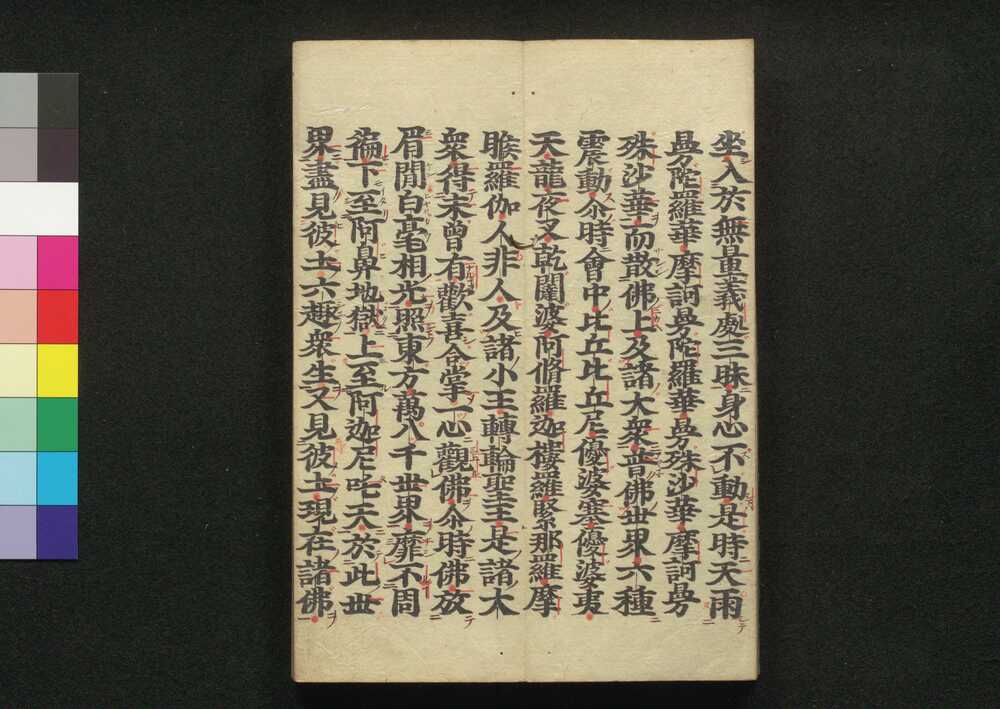 坐入於無量義處三昧身心不動是時天雨
曼陀羅華摩訶曼陀羅華曼殊沙華摩訶曼
殊沙華而散佛上及諸大衆普佛世界六種
震動尒時會中比丘比丘尼優婆塞優婆夷
天龍夜叉乾闥婆阿脩羅迦樓羅緊那羅摩
睺羅伽人非人及諸小王轉輪聖王是諸大
衆得未曾有歡喜合掌一心觀佛尒時佛放
眉間白毫相光照東方萬八千世界靡不周
徧下至阿鼻地獄上至阿迦尼吒天於此世
界盡見彼土六趣衆生又見彼土現在諸佛